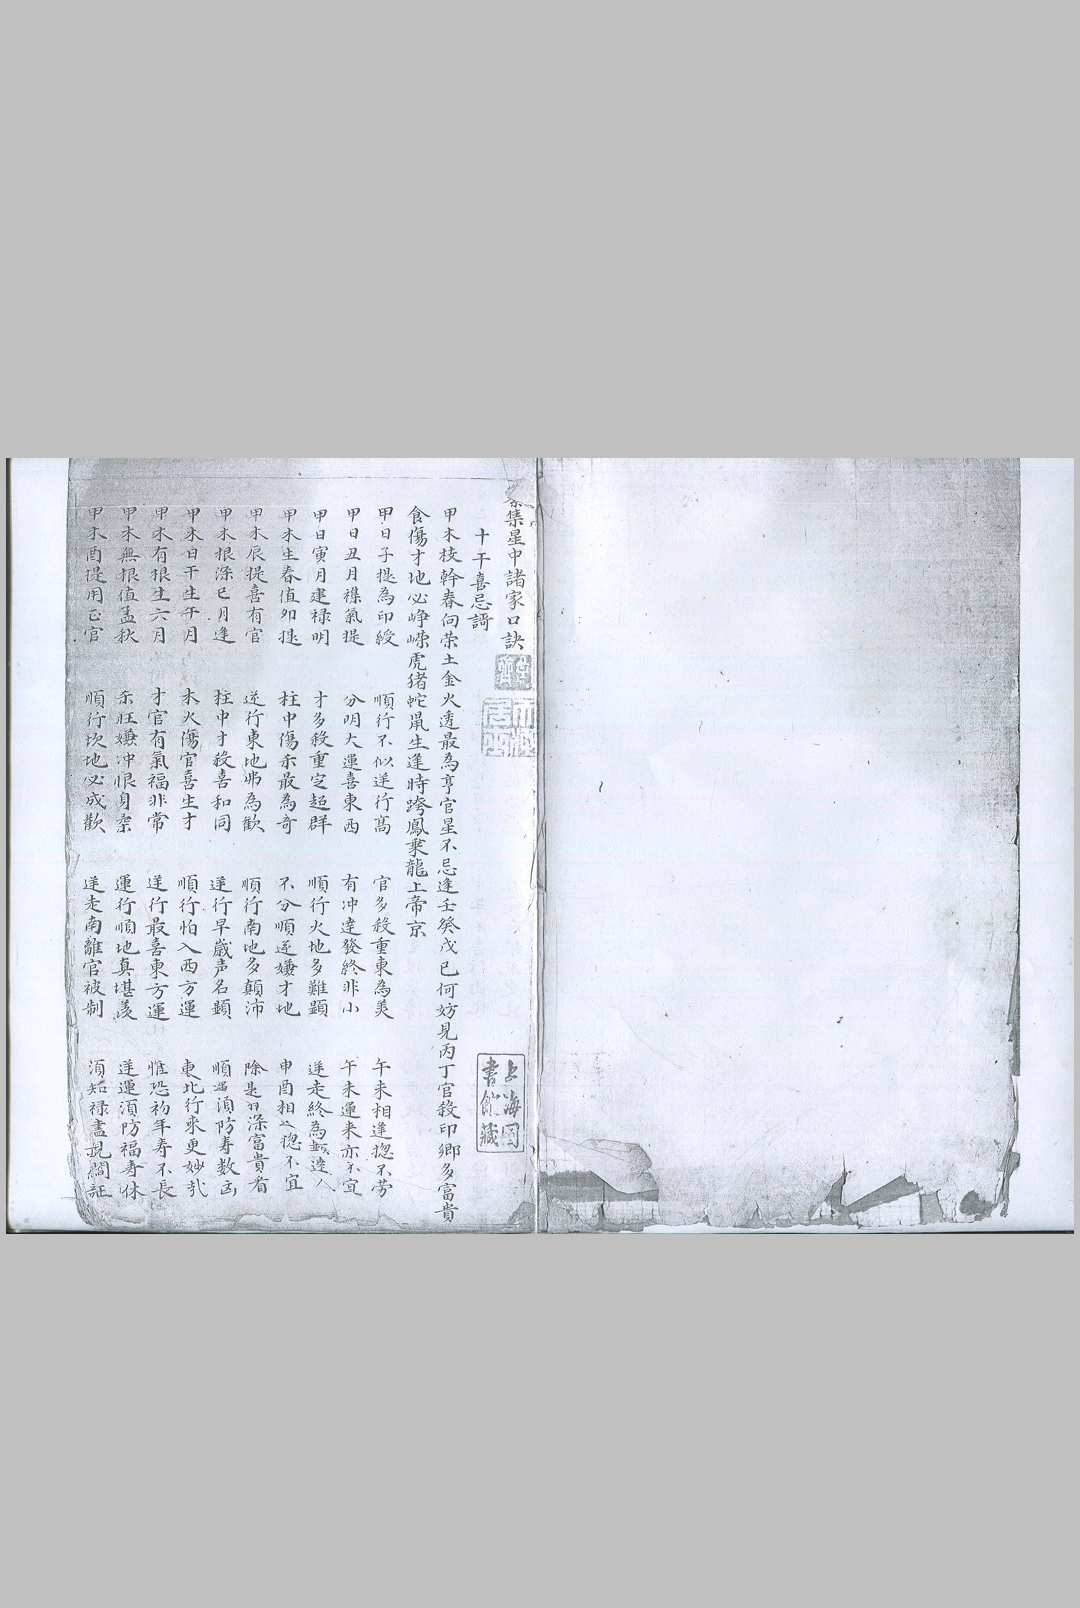 集星中諸家口訣
十干喜忌謌
甲木枝幹春向荣土金火透最為亨官星不忌逢壬癸戊己何妨見丙丁官殺印卿多富貴
食傷才地必崢嶸虎猪蛇鼠生逢時跨鳳乘龍上帝京
甲日子提為印綬 順行不似逆行高 官多殺重東為美 午未相逢揔不劳
甲日丑月襍氣提 分明大運喜東西 有冲達發終非小 午未運来亦不宜
甲日寅月建禄明 才多殺重定超群 順行火地多難顕 逆走終為達人
甲木生春值卯提 柱中傷杀最為奇 不分順逐嫌才地 申酉相揔不宜
甲木辰提喜有官 逆行東地弗為歡 順行南地多顛沛 除是深富貴看
甲木根深巳月逢 柱中才殺喜和同 逆行早歲声名顕 順須防寿数凶
甲木日干生午月 木火傷官喜生才 順行怕入西方運 東北行来更妙哉
甲木有根生六月 才官有氣福非常 逆行最喜東方運 惟恐初年寿不長
甲木無根值孟秋 杀旺嫌冲恨身柔 運行順地真堪羡 逆運須防福寿休
甲木酉提用正官 順行坎地必成歡 逆走南離官被制 須知禄盡
上海图
書館藏